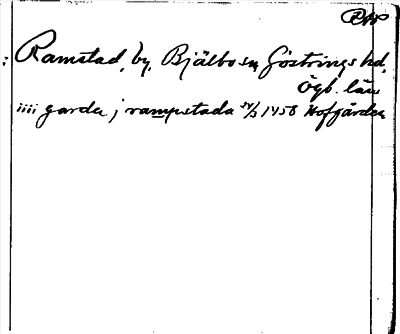 Ramstad, by, Bjälbo sn, Göstrings hd,
Ögb. län
iiii garda j rampstada 24/3 1458 Hofgården